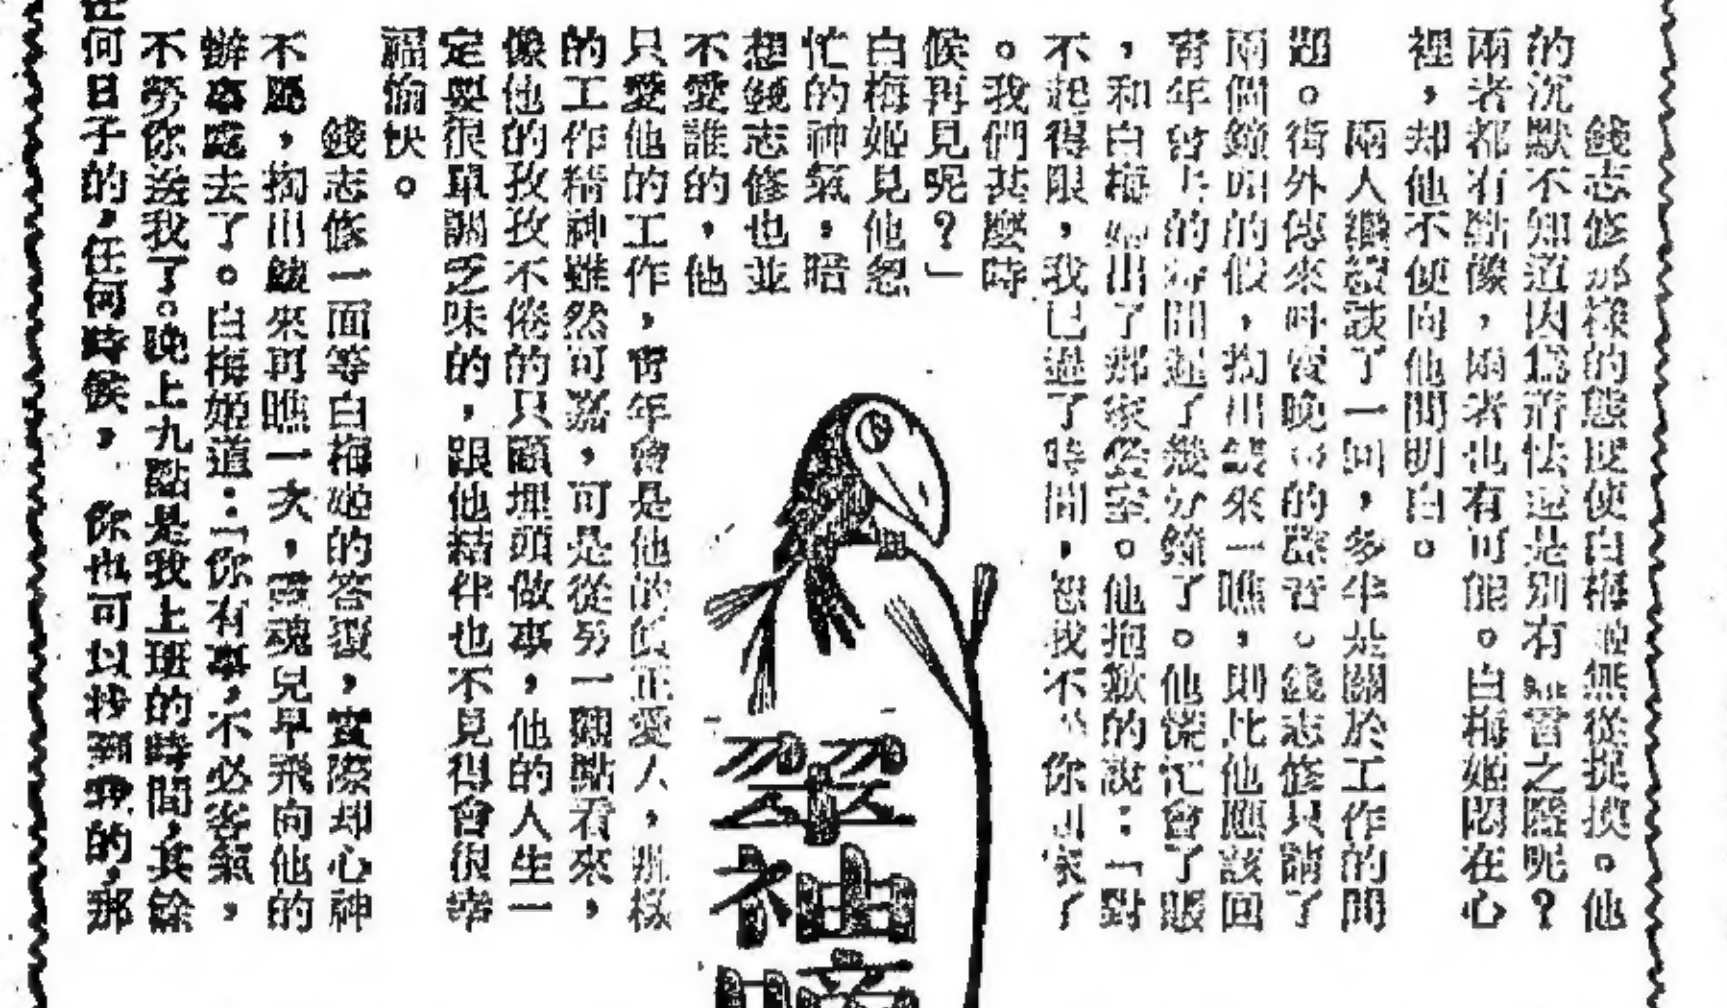 錢志修那樣的態度使白梅姬無從捉摸。他
的沉默不知道因為膽怯還是別有隱之處呢？
兩者都有點像，兩者也有可能。白梅姬悶在心
裡，却他不便向他問明白。
兩人繼續談了一回，多半是關於工作的問
題。街外傳來叫賣晚報的聲音。錢志修只請了
兩個鐘頭的假，掏出錶來一瞧，則比他應該回
青年會去的時間過了幾分鐘了。他慌忙會了賬
，和白梅姬出了那家餐室。他抱歉的說：「對
不起得很，我已過了時間，恕我不送你回家了
。我們甚麼時
候再見呢？」
白梅姬見他忽
忙的神氣，暗
想錢志修也並
不愛誰的，他
只愛他的工作，青年會是他的真正愛人，那樣
的工作精神雖然可嘉，可是從另一觀點看來，
像他的孜孜不倦的只顧埋頭做事，他的人生一
定要很單調乏味的，跟他結伴也不見得會很幸
福愉快。
錢志修一面等白梅姬的答覆，實際却心神
不屬，掏出錶來再瞧一次，靈魂兒早飛向他的
辦事處去了。白梅姬道：「你有事，不必客氣，
不勞你送我了。晚上九點是我上班的時間，其餘
任何日子的，任何時候，你也可以找到我的，那
翠袖